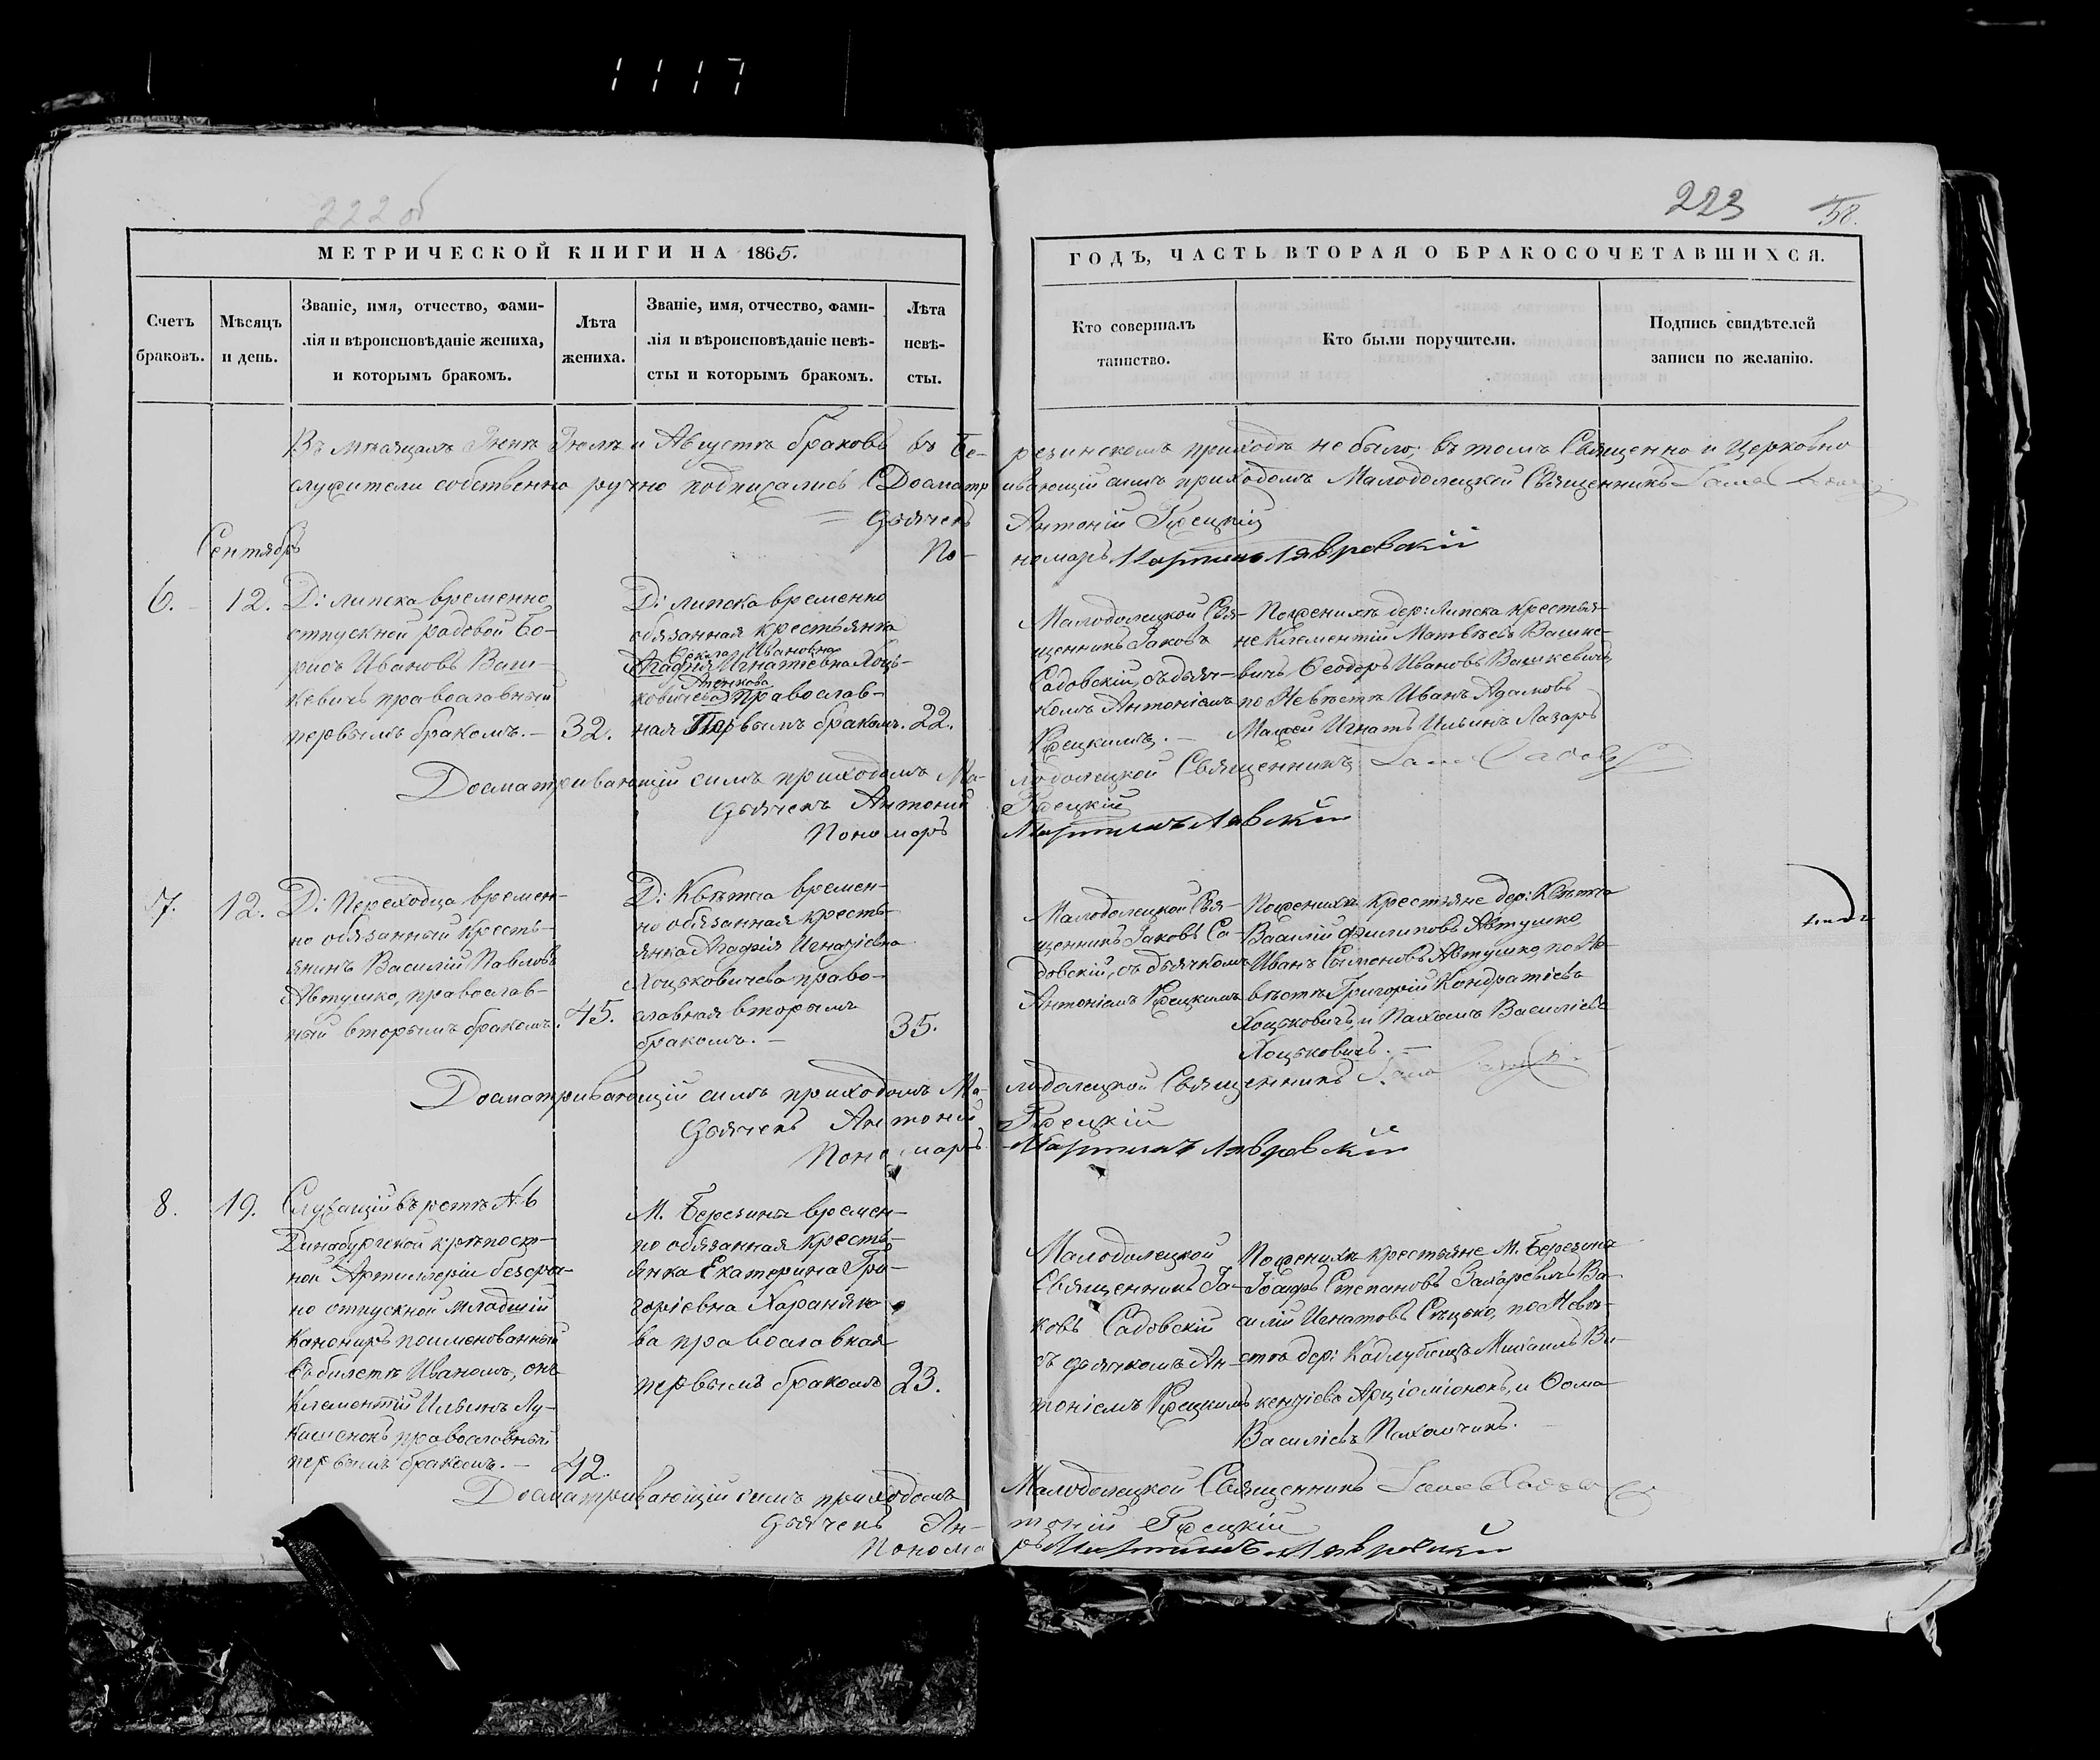 1117
222 об
223
58.
МЕТРИЧЕСКОЙ КНИГИ НА 1865.
ГОДЪ, ЧАСТЬ ВТОРАЯ О БРАКОСОЧЕТАВШИХСЯ.
Счетъ браковъ.
Мѣсяцъ и день.
Званіе, имя, отчество, фами-
лія и вѣроисповѣданіе жениха,
и которымъ бракомъ.
Лѣта жениха.
Званіе, имя, отчество, фами-
лія и вѣроисповѣданіе невѣ-
сты и которымъ бракомъ.
Лѣта невѣ-
сты.
Кто совершалъ
таинство.
Кто были поручители.
Подпись свидѣтелей
записи по желанію.
Въ мѣсяцахъ Іюнѣ Іюлѣ и Августѣ браковъ въ Бе-
резинскомъ приходѣ не было; въ томъ Священно и Церковно
служители собственно ручно подписались: Досматр
ивающій симъ приходомъ Малодолецкой Священникъ
Дьячекъ Антоній
По-
номарь Мартинъ Лавровскій
Сентябрь
6.
12.
Д: Липска временно
отпускной рядовой Бо-
рисъ Ивановъ Ваш-
кевичь православный
первымъ бракомъ.
32.
Д: Липска временно
обязанная крестьянка
Ѳекла Ивановна
Агафія Игнатіевна Хоць-
ковичева православ-
ная Первымъ бракомъ.
22.
Малодолецкой Свя-
щенникъ Іаковъ
Садовскій, съ дьяч-
комъ Антоніемъ
По женихѣ дер: Липска крестья-
не Климентій Матвѣевъ Вашке-
вичь Ѳеодоръ Ивановъ Вашкевичь,
по Невѣстѣ Иванъ Адамовъ
Игнатъ Ильинъ Лазаръ
Досматривающій симъ приходомъ Ма-
лодолецкой Священникъ
Дьячекъ Антоній
Пономарь
7.
12.
Д: Переходца времен-
но обязанный кресть-
янинъ Василій Павловъ
Автушко, православ-
ный вторымъ бракомъ.
45.
Д: Квѣтча времен-
но обязанная кресть-
янка Агафія Игнатіевна
Хоцьковичева право-
славная вторымъ
бракомъ.
35.
Малодолецкой Свя-
щенникъ Іаковъ Са-
довскій, съ дьячкомъ
Антоніемъ
По женихѣ крестьяне дер: Квѣтча
Василій Филиповъ Автушко
Иванъ Сименовъ Автушко, по Не-
вѣстѣ Григорій Кондратіевъ
Хоцьковичь, и Пахомъ Василіевъ
Хоцьковичь.
Досматривающій симъ приходомъ Ма-
лодолецкой Священникъ
Дьячекъ Антоній
Пономарь
Мартинъ Лавровскій
8.
19.
Служащій въ ротѣ № 6
Динабургской крѣпост-
ной Артиллеріи безсроч-
но отпускной младшій
Канониръ поименованный
въ билетѣ Иваномъ, онъ
Климентій Ильинъ Лу-
кашенокъ православный
первымъ бракомъ.
42.
М. Березина времен-
но обязанная кресть-
янка Екатерина Гри-
горіевна Хараняко-
ва православная
первымъ бракомъ
23.
Малодолецкой
Священникъ Іа-
ковъ Садовскій
съ дьячкомъ Ан-
тоніемъ
По женихѣ крестьяне М. Березина
Іосифъ Степановъ Захаревичь Ва-
силій Игнатовъ Сицько, по Невѣ-
стѣ дер: Кадлубищъ Михаилъ Ви-
кентіевъ и Ѳома
Василіевъ Пахомчикъ.
Досматривающій симъ приходомъ
Малодолецкой Священникъ
Дьячекъ Ан-
тоній
Понома
рь Мартинъ Лавровскій